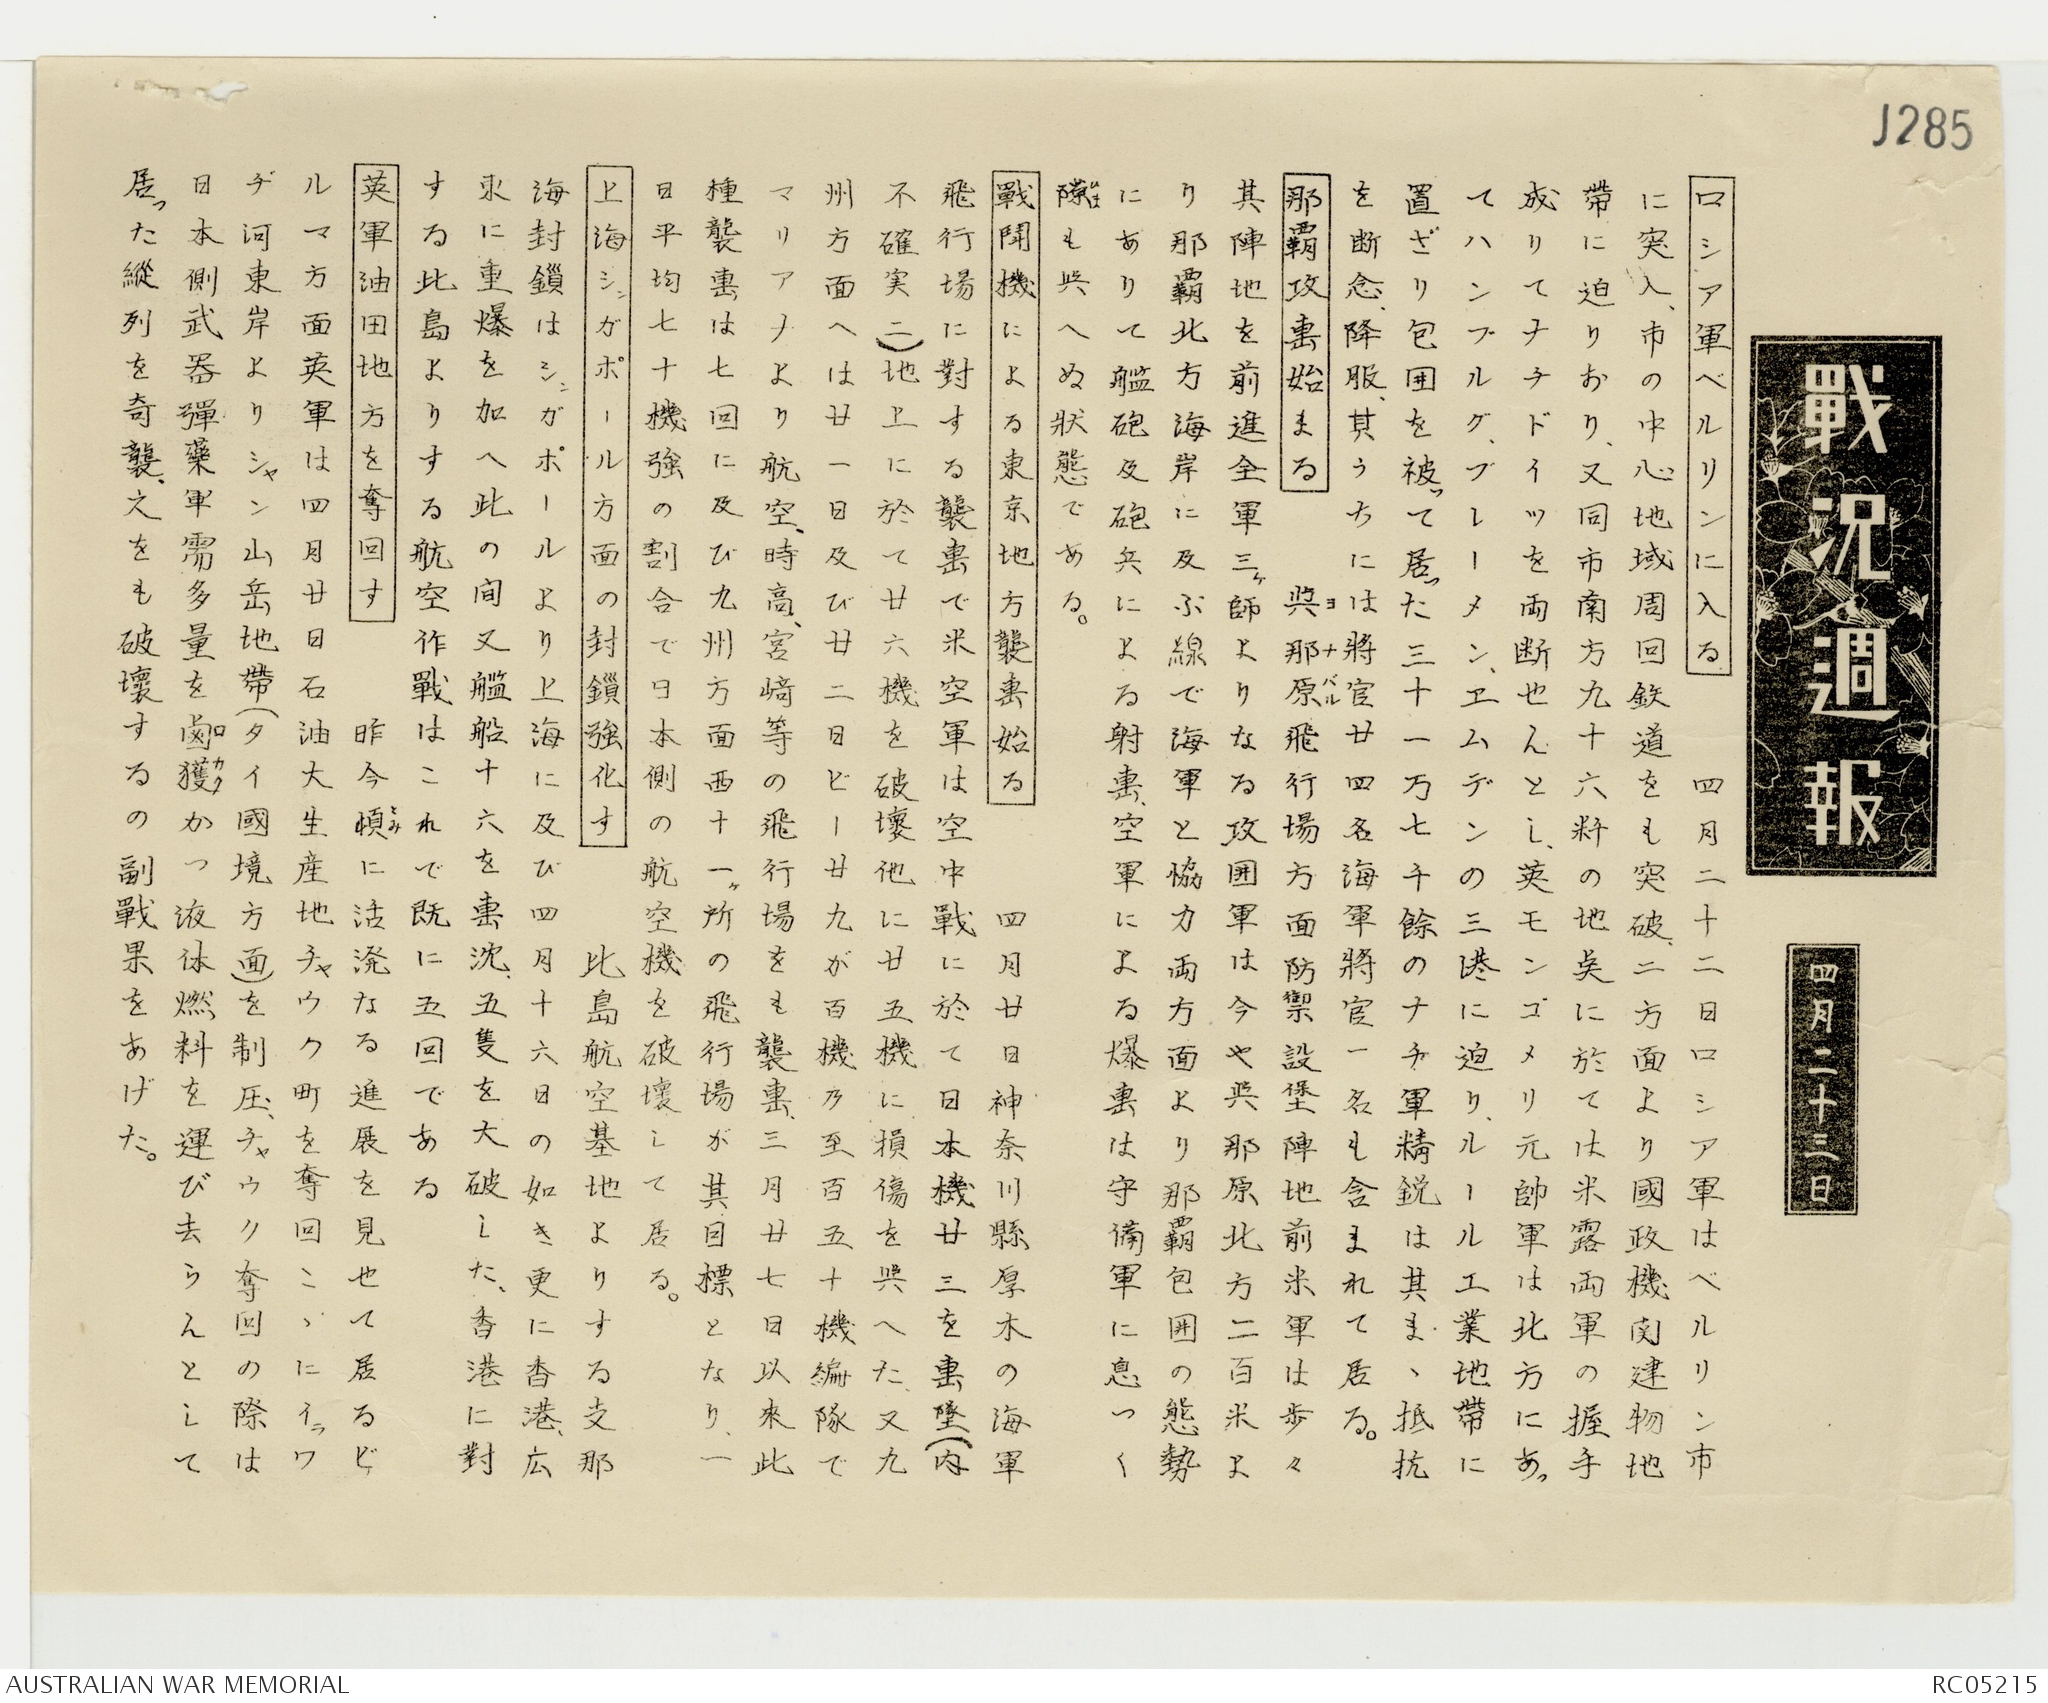 J285
戰況週報
四月二十三日
ロシア軍ベルリンに入る　四月二十二日ロシア軍はベルリン市
に突入、市の中心地域周回鉄道をも突破、二方面より國政機関建物地
帶に迫りおり、又同市南方九十六粁の地点に於ては米露両軍の握手
成りてナチドイツを両断せんとし、英モンゴメリ元帥軍は北方にあっ
てハンブルグ、ブレーメン、エムデンの三港に迫り、ルール工業地帶に
置ざり包囲を被って居った三十一万七千餘のナチ軍精鋭は其まゝ抵抗
を断念、降服、其うちには將官廿四名海軍將官一名も含まれて居る。
那覇攻撃始まる　與那原飛行場方面防禦設堡陣地前米軍は歩々
其陣地を前進全軍三ヶ師よりなる攻囲軍は今や與那原北方二百米よ
り那覇北方海岸に及ぶ線で海軍と協力両方面より那覇包囲の態勢
にありて艦砲及砲兵による射撃、空軍による爆撃は守備軍に息つく
隙も與へぬ狀態である。
戰闘機による東京地方襲撃始る　四月廿日神奈川縣厚木の海軍
飛行場に對する襲撃で米空軍は空中戰に於て日本機廿三を撃墜(内
不確実二)地上に於て廿六機を破壞他に廿五機に損傷を與へた、又九
州方面へは廿一日及び廿二日ビー廿九が百機乃至百五十機編隊で
マリアナより航空、時高、宮崎等の飛行場をも襲撃、三月廿七日以來此
種襲撃は七回に及び九州方面西十一ヶ所の飛行場が其目標となり、一
日平均七十機強の割合で日本側の航空機を破壞して居る。
上海シンガポール方面の封鎖強化す　此島航空基地よりする支那
海封鎖はシンガポールより上海に及び四月十六日の如き更に香港、広
東に重爆を加へ此の間又艦船十六を撃沈、五隻を大破した、香港に對
する此島よりする航空作戰はこれで既に五回である
英軍油田地方を奪回す　昨今頓に活溌なる進展を見せて居るビ
ルマ方面英軍は四月廿日石油大生産地チャウク町を奪回こゝにイラワ
ヂ河東岸よりシャン山岳地帶(タイ國境方面)を制圧、チャウク奪回の際は
日本側武器彈藥軍需多量を鹵獲かつ液体燃料を運び去らんとして
居った縱列を奇襲、之をも破壞するの副戰果をあげた。
AUSTRALIAN WAR MEMORIAL
RC05215